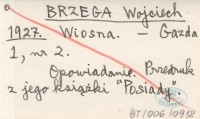 BRZEGA Wojciech
1927. Wiosna. – Gazda
1, nr 2.
Opowiadanie. Przedruk
z jego książki "Posiady".
BT/006/0918